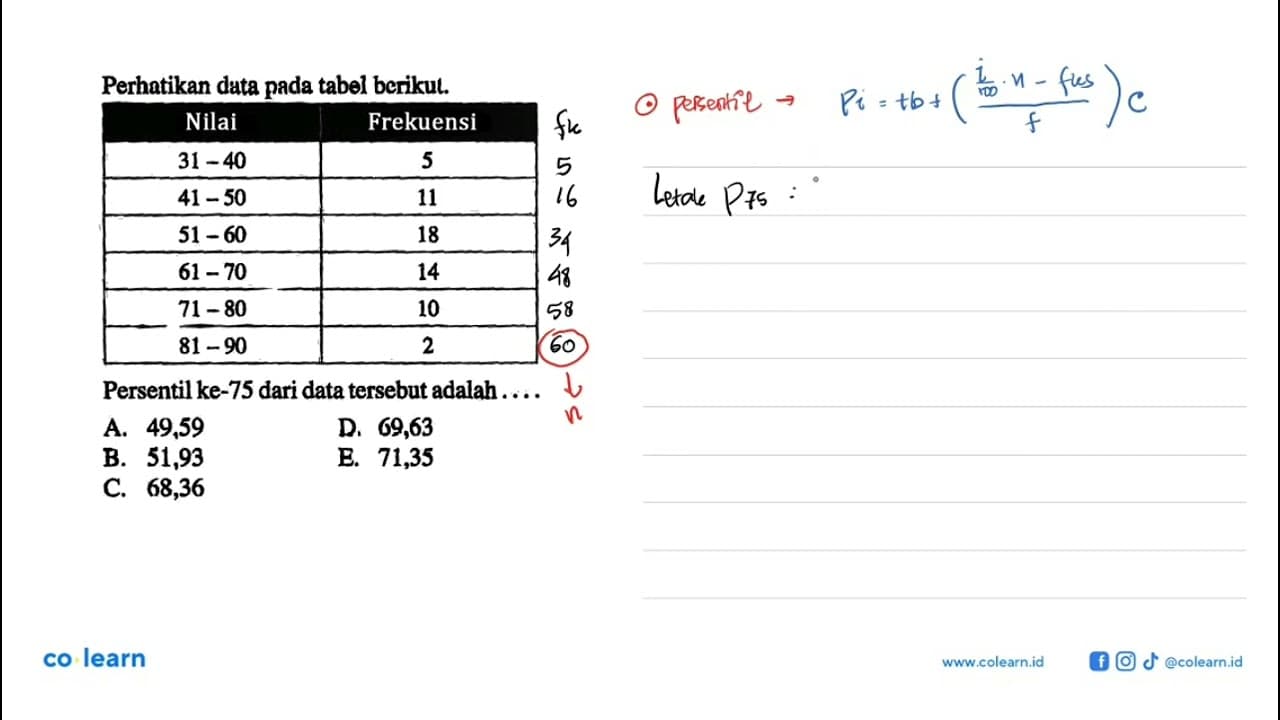 Perhatikan data pada tabel berikut.
Nilai Frekuensi fk
31 – 40 5 5
41 – 50 11 16
51 – 60 18 34
61 – 70 14 48
71 – 80 10 58
81 – 90 2 60
↓
n
Persentil ke-75 dari data tersebut adalah . . . .
A. 49,59 D. 69,63
B. 51,93 E. 71,35
C. 68,36
persentil → Pi = tb + ( i/100 . n – fks / f ) c
Letak P75 :
co learn
www.colearn.id @colearn.id